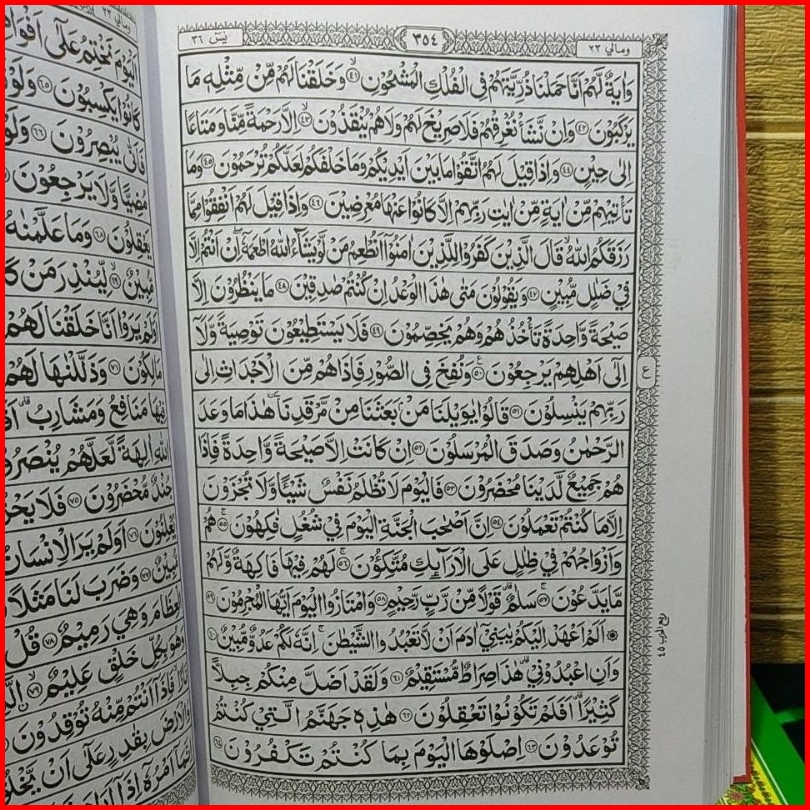 ومالي ٢٣
٣٥٤
يٰسٓ ٣٦
وَاٰيَةٌ لَّهُمْ اَنَّا حَمَلْنَا ذُرِّيَّتَهُمْ فِى الْفُلْكِ الْمَشْحُوْنِ ٤١ وَخَلَقْنَا لَهُمْ مِّنْ مِّثْلِهٖ مَا
يَرْكَبُوْنَ ٤٢ وَاِنْ نَّشَأْ نُغْرِقْهُمْ فَلَا صَرِيْخَ لَهُمْ وَلَا هُمْ يُنْقَذُوْنَ ٤٣ اِلَّا رَحْمَةً مِّنَّا وَمَتَاعًا
اِلٰى حِيْنٍ ٤٤ وَاِذَا قِيْلَ لَهُمُ اتَّقُوْا مَا بَيْنَ اَيْدِيْكُمْ وَمَا خَلْفَكُمْ لَعَلَّكُمْ تُرْحَمُوْنَ ٤٥ وَمَا
تَأْتِيْهِمْ مِّنْ اٰيَةٍ مِّنْ اٰيٰتِ رَبِّهِمْ اِلَّا كَانُوْا عَنْهَا مُعْرِضِيْنَ ٤٦ وَاِذَا قِيْلَ لَهُمْ اَنْفِقُوْا مِمَّا
رَزَقَكُمُ اللّٰهُ قَالَ الَّذِيْنَ كَفَرُوْا لِلَّذِيْنَ اٰمَنُوْٓا اَنُطْعِمُ مَنْ لَّوْ يَشَاۤءُ اللّٰهُ اَطْعَمَهٗٓ اِنْ اَنْتُمْ اِلَّا
فِيْ ضَلٰلٍ مُّبِيْنٍ ٤٧ وَيَقُوْلُوْنَ مَتٰى هٰذَا الْوَعْدُ اِنْ كُنْتُمْ صٰدِقِيْنَ ٤٨ مَا يَنْظُرُوْنَ اِلَّا
صَيْحَةً وَّاحِدَةً تَأْخُذُهُمْ وَهُمْ يَخِصِّمُوْنَ ٤٩ فَلَا يَسْتَطِيْعُوْنَ تَوْصِيَةً وَّلَآ
اِلٰٓى اَهْلِهِمْ يَرْجِعُوْنَ ٥٠ وَنُفِخَ فِى الصُّوْرِ فَاِذَا هُمْ مِّنَ الْاَجْدَاثِ اِلٰى
رَبِّهِمْ يَنْسِلُوْنَ ٥١ قَالُوْا يٰوَيْلَنَا مَنْۢ بَعَثَنَا مِنْ مَّرْقَدِنَا هٰذَا مَا وَعَدَ
الرَّحْمٰنُ وَصَدَقَ الْمُرْسَلُوْنَ ٥٢ اِنْ كَانَتْ اِلَّا صَيْحَةً وَّاحِدَةً فَاِذَا
هُمْ جَمِيْعٌ لَّدَيْنَا مُحْضَرُوْنَ ٥٣ فَالْيَوْمَ لَا تُظْلَمُ نَفْسٌ شَيْـًٔا وَّلَا تُجْزَوْنَ
اِلَّا مَا كُنْتُمْ تَعْمَلُوْنَ ٥٤ اِنَّ اَصْحٰبَ الْجَنَّةِ الْيَوْمَ فِيْ شُغُلٍ فٰكِهُوْنَ ٥٥ هُمْ
وَاَزْوَاجُهُمْ فِيْ ظِلٰلٍ عَلَى الْاَرَاۤىِٕكِ مُتَّكِـُٔوْنَ ٥٦ لَهُمْ فِيْهَا فَاكِهَةٌ وَّلَهُمْ
مَّا يَدَّعُوْنَ ٥٧ سَلٰمٌ قَوْلًا مِّنْ رَّبٍّ رَّحِيْمٍ ٥٨ وَامْتَازُوا الْيَوْمَ اَيُّهَا الْمُجْرِمُوْنَ ٥٩
۞ اَلَمْ اَعْهَدْ اِلَيْكُمْ يٰبَنِيْٓ اٰدَمَ اَنْ لَّا تَعْبُدُوا الشَّيْطٰنَ اِنَّهٗ لَكُمْ عَدُوٌّ مُّبِيْنٌ ٦٠
وَّاَنِ اعْبُدُوْنِيْ هٰذَا صِرَاطٌ مُّسْتَقِيْمٌ ٦١ وَلَقَدْ اَضَلَّ مِنْكُمْ جِبِلًّا
كَثِيْرًا اَفَلَمْ تَكُوْنُوْا تَعْقِلُوْنَ ٦٢ هٰذِهٖ جَهَنَّمُ الَّتِيْ كُنْتُمْ
تُوْعَدُوْنَ ٦٣ اِصْلَوْهَا الْيَوْمَ بِمَا كُنْتُمْ تَكْفُرُوْنَ ٦٤
ع
ومالي ٢٣
اَلْيَوْمَ نَخْتِمُ عَلٰٓى
كَانُوْا يَكْسِبُوْنَ ٦٥ وَلَوْ
فَاَنّٰى يُبْصِرُوْنَ ٦٦ وَلَوْ
مُضِيًّا وَّلَا يَرْجِعُوْنَ
يَعْقِلُوْنَ ٦٨ وَمَا عَلَّمْنٰهُ
مُّبِيْنٌ ٦٩ لِّيُنْذِرَ مَنْ
يَرَوْا اَنَّا خَلَقْنَا لَهُمْ
مٰلِكُوْنَ ٧١ وَذَلَّلْنٰهَا لَهُمْ
فِيْهَا مَنَافِعُ وَمَشَارِبُ
اللّٰهِ اٰلِهَةً لَّعَلَّهُمْ يُنْصَرُوْنَ
جُنْدٌ مُّحْضَرُوْنَ ٧٥ فَلَا
يُعْلِنُوْنَ ٧٦ اَوَلَمْ يَرَ الْاِنْسَانُ
مُّبِيْنٌ ٧٧ وَضَرَبَ لَنَا مَثَلًا
الْعِظَامَ وَهِيَ رَمِيْمٌ ٧٨ قُلْ
وَهُوَ بِكُلِّ خَلْقٍ عَلِيْمٌ ٧٩
فَاِذَآ اَنْتُمْ مِّنْهُ تُوْقِدُوْنَ ٨٠
وَالْاَرْضَ بِقٰدِرٍ عَلٰٓى اَنْ
اِنَّمَآ اَمْرُهٗٓ اِذَآ